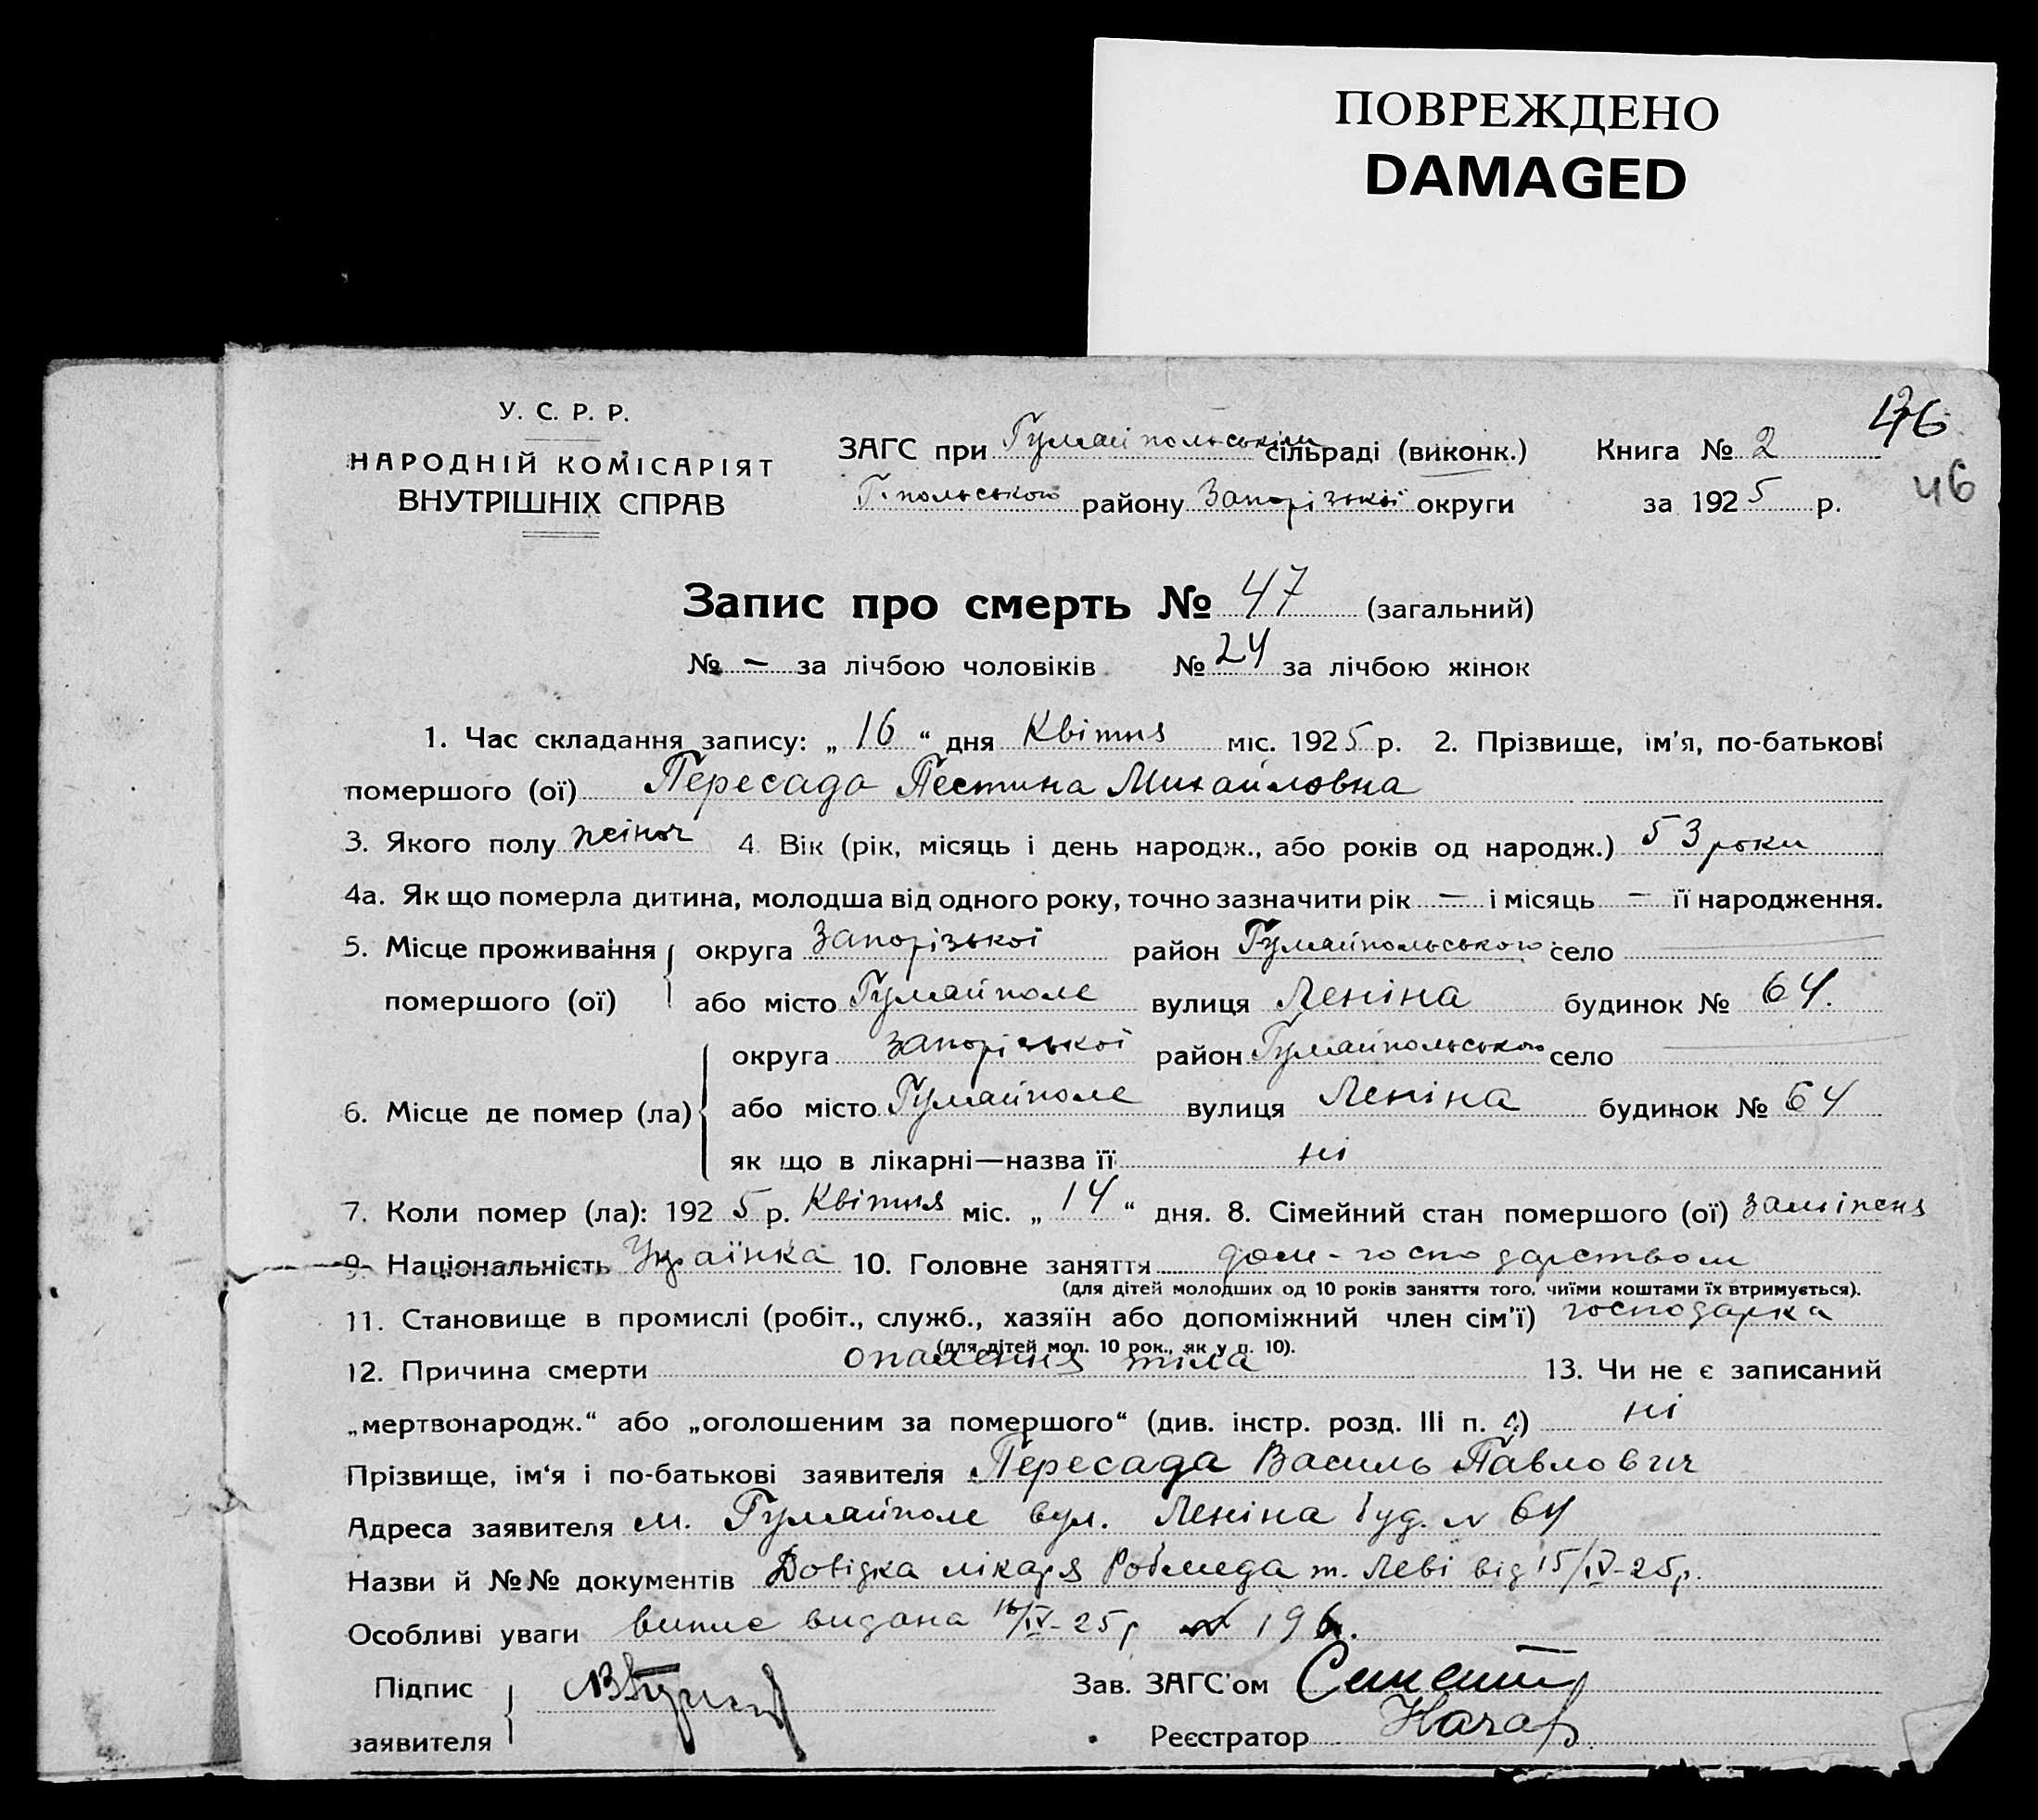 ПОВРЕЖДЕНО
DAMAGED
136
46
У. С. Р. Р.
НАРОДНІЙ КОМІСАРІЯТ
ВНУТРІШНІХ СПРАВ
ЗАГС при Гуляйпольськім сільраді (виконк.) Книга № 2
Г.польського району Запорізької округи за 1925 р.
Запис про смерть № 47 (загальний)
№ — за лічбою чоловіків № 24 за лічбою жінок
1. Час складання запису: „ 16 “ дня Квітня міс. 1925 р. 2. Прізвище, ім'я, по-батькові
помершого (ої) Пересада Пестина Михайловна
3. Якого полу жіноч 4. Вік (рік, місяць і день народж., або років од народж.) 53 роки
4а. Як що померла дитина, молодша від одного року, точно зазначити рік — і місяць — її народження.
5. Місце проживання округа Запорізької район Гуляйпольського село
помершого (ої) або місто Гуляйполе вулиця Леніна будинок № 64.
округа Запорізької район Гуляйпольського село
6. Місце де помер (ла) або місто Гуляйполе вулиця Леніна будинок № 64
як що в лікарні—назва її ні
7. Коли помер (ла): 1925 р. Квітня міс. „ 14 “ дня. 8. Сімейний стан помершого (ої) заміжня
9. Національність Українка 10. Головне заняття дом-господарством
(для дітей молодших од 10 років заняття того, чиїми коштами їх втримується).
11. Становище в промислі (робіт., служб., хазяїн або допоміжний член сім'ї) господарка
(для дітей мол. 10 рок., як у п. 10).
12. Причина смерти опалення тіла 13. Чи не є записаний
„мертвонародж.“ або „оголошеним за померщого“ (див. інстр. розд. III п. ) ні
Прізвище, ім‘я і по-батькові заявителя Пересада Василь Павлович
Адреса заявителя м. Гуляйполе вул. Леніна буд. № 64
Назви й №№ документів Довідка лікаря Робмеда т. Леві від 15/IV-25р.
Особливі уваги випис видана 16/IV-25р № 196.
Підпис
заявителя
Зав. ЗАГС'ом
Реєстратор